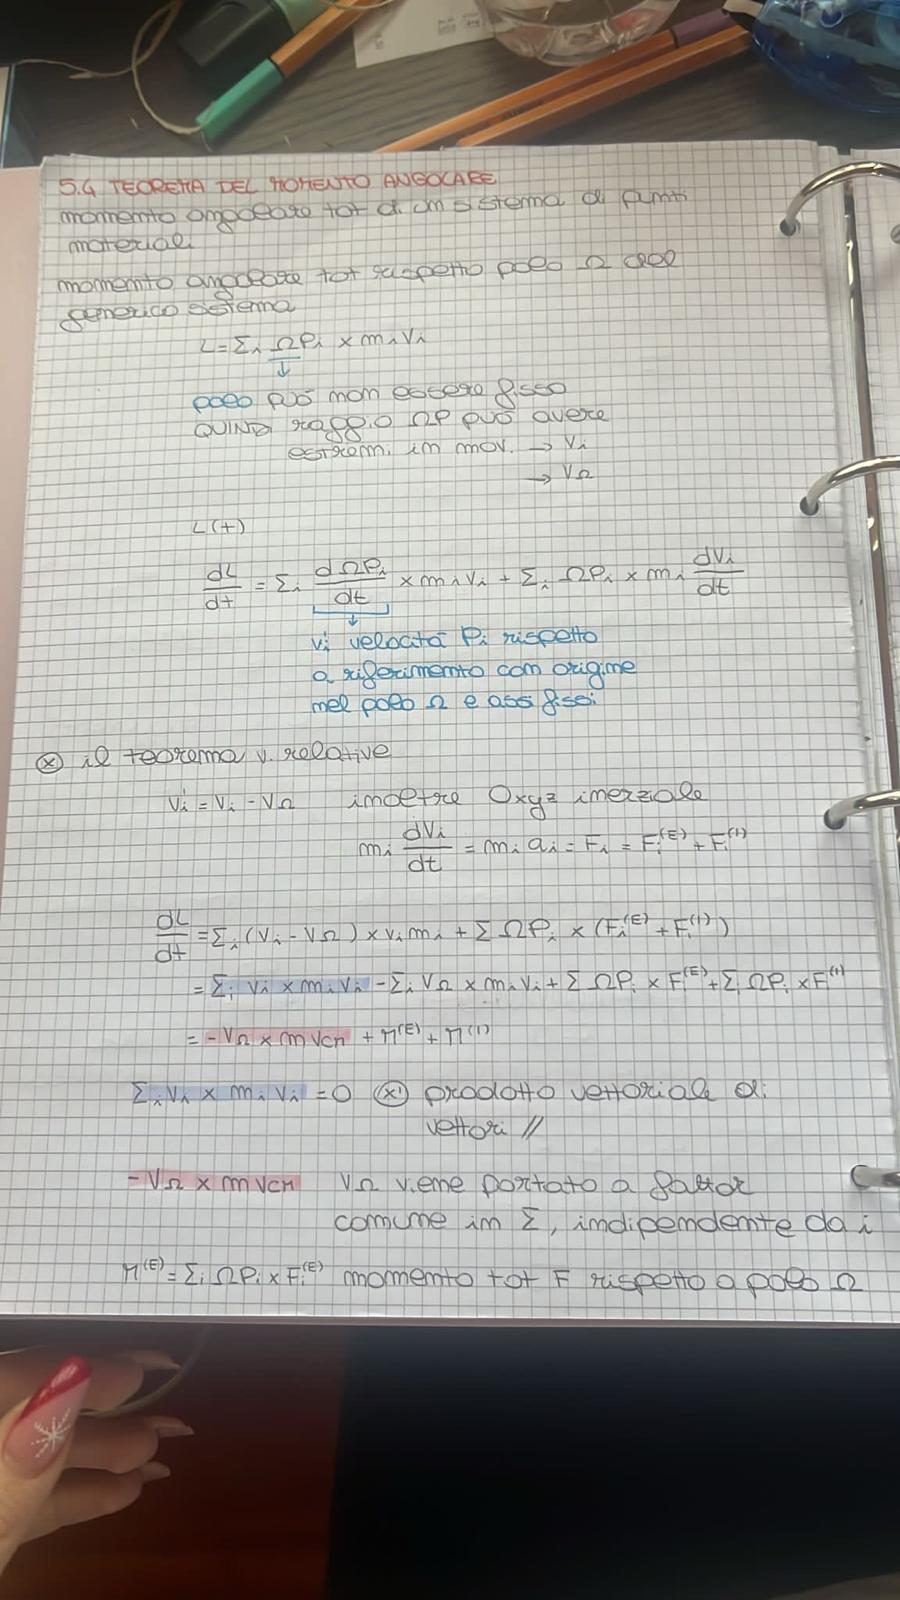 5.4 TEOREMA DEL MOMENTO ANGOLARE
momento angolare tot di un sistema di punti
materiali
momento angolare tot rispetto polo Ω del
generico sistema
L = Σi ΩPi × mivi
↓
polo può non essere fisso
QUINDI raggio ΩP può avere
estremi in mov. → Vi
→ VΩ
L(t)
dL/dt = Σi dΩPi/dt × mivi + Σi ΩPi × mi dVi/dt
↓
vi' velocità Pi rispetto
a riferimento con origine
nel polo Ω e assi fissi
ⓧ il teorema v. relative
Vi' = Vi - VΩ inoltre Oxyz inerziale
mi dVi/dt = mi ai = Fi = Fi^(E) + Fi^(I)
dL/dt = Σi (Vi - VΩ) × vi mi + Σ ΩPi × (Fi^(E) + Fi^(I))
= Σi Vi × mi Vi - Σi VΩ × mi Vi + Σ ΩPi × Fi^(E) + Σi ΩPi × F^(I)
= - VΩ × m VCM + M^(E) + M^(I)
Σi Vi × mi Vi = 0 ⓧ prodotto vettoriale di
vettori //
- VΩ × m VCM VΩ viene portato a fattor
comune in Σ, indipendente da i
M^(E) = Σi ΩPi × Fi^(E) momento tot F rispetto a polo Ω